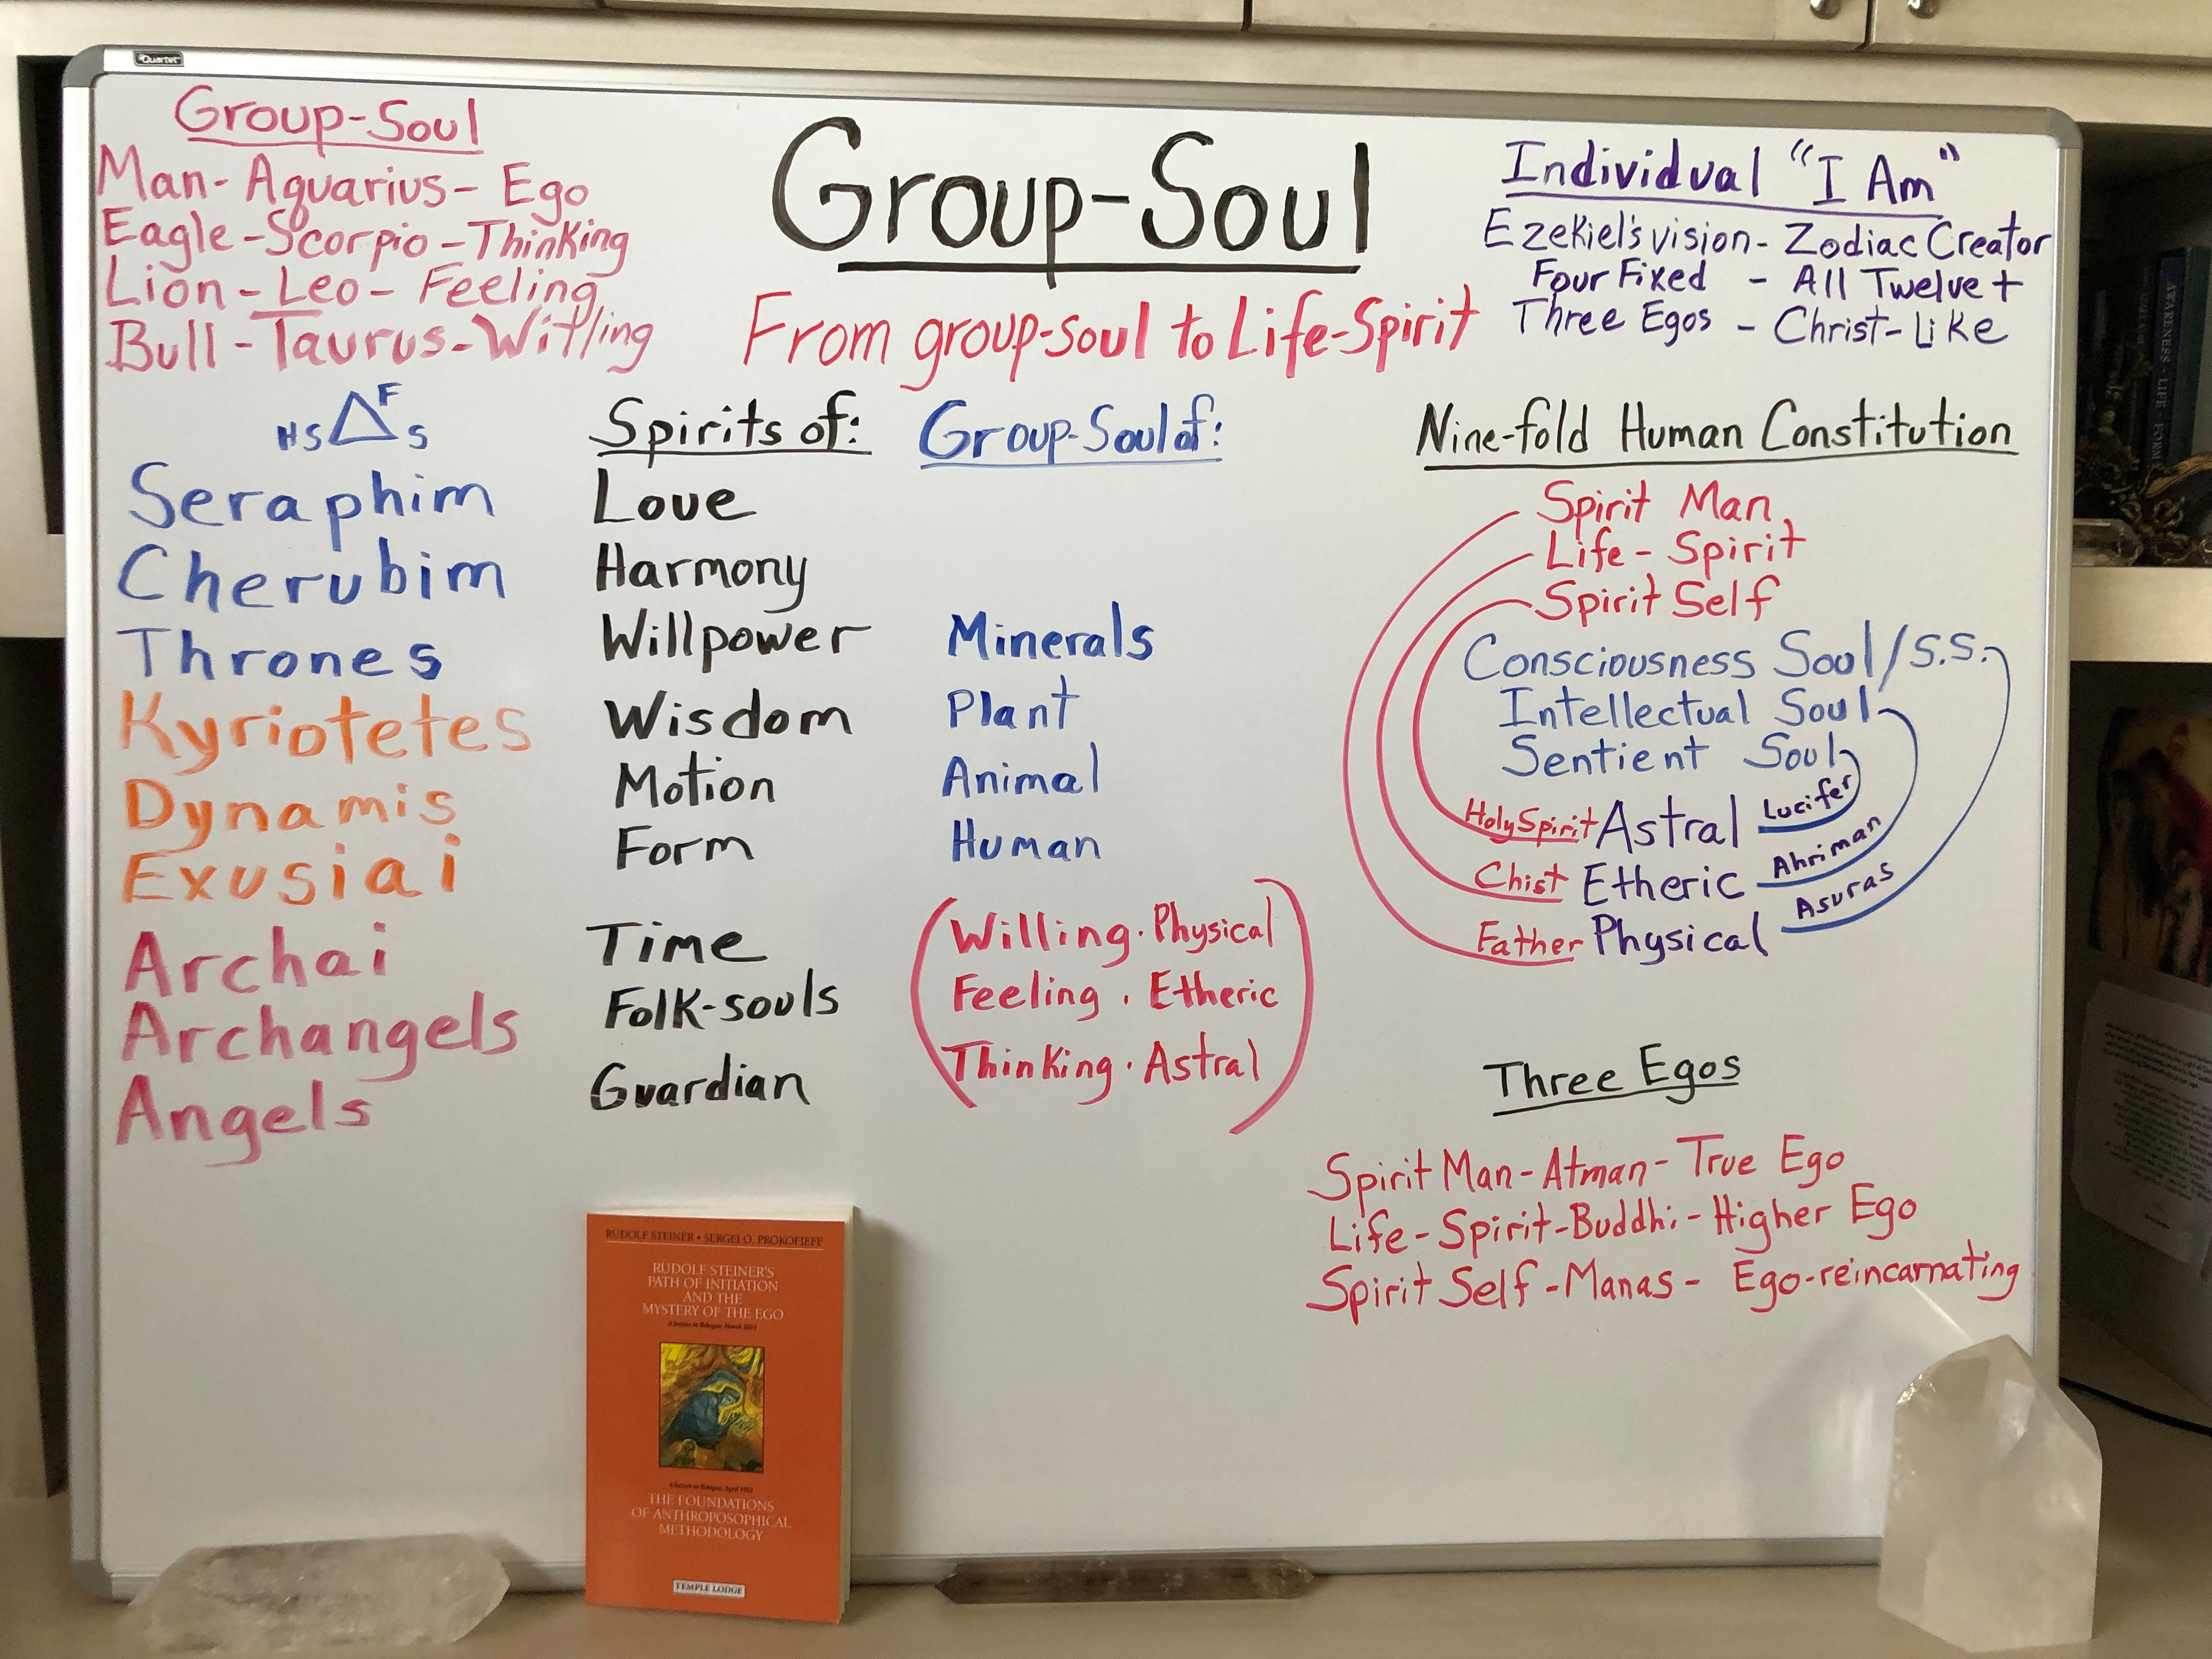 Quartet
Group-Soul
Man - Aquarius - Ego
Eagle - Scorpio - Thinking
Lion - Leo - Feeling
Bull - Taurus - Willing
Group-Soul
From group-soul to Life-Spirit
Individual "I Am"
Ezekiel's vision - Zodiac Creator
Four Fixed - All Twelve +
Three Egos - Christ-Like
F
HS S
Seraphim
Cherubim
Thrones
Kyriotetes
Dynamis
Exusiai
Archai
Archangels
Angels
Spirits of:
Love
Harmony
Willpower
Wisdom
Motion
Form
Time
Folk-souls
Guardian
Group-Soul of:
Minerals
Plant
Animal
Human
Willing · Physical
Feeling · Etheric
Thinking · Astral
Nine-fold Human Constitution
Spirit Man
Life-Spirit
Spirit Self
Consciousness Soul/S.S.
Intellectual Soul
Sentient Soul
Holy Spirit Astral Lucifer
Chist Etheric Ahriman
Father Physical Asuras
Three Egos
Spirit Man - Atman - True Ego
Life-Spirit - Buddhi - Higher Ego
Spirit Self - Manas - Ego-reincarnating
RUDOLF STEINER • SERGEI O. PROKOFIEFF
RUDOLF STEINER'S
PATH OF INITIATION
AND THE
MYSTERY OF THE EGO
THE FOUNDATIONS
OF ANTHROPOSOPHICAL
METHODOLOGY
TEMPLE LODGE